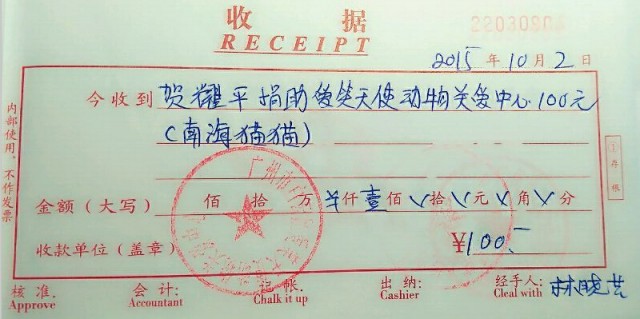 收 据
RECEIPT
2015年10月2日
今收到 贺耀平捐助 天使动物关爱中心 100元
(南海猫猫)
金额(大写) 佰 拾 万 ¥仟壹佰 拾 元 角 分
收款单位(盖章) ¥100.-
内部使用,不作发票
核准: 会计: 记帐: 出纳: 经手人: 林晓芸
Approve Accountant Chalk it up Cashier Cleal with